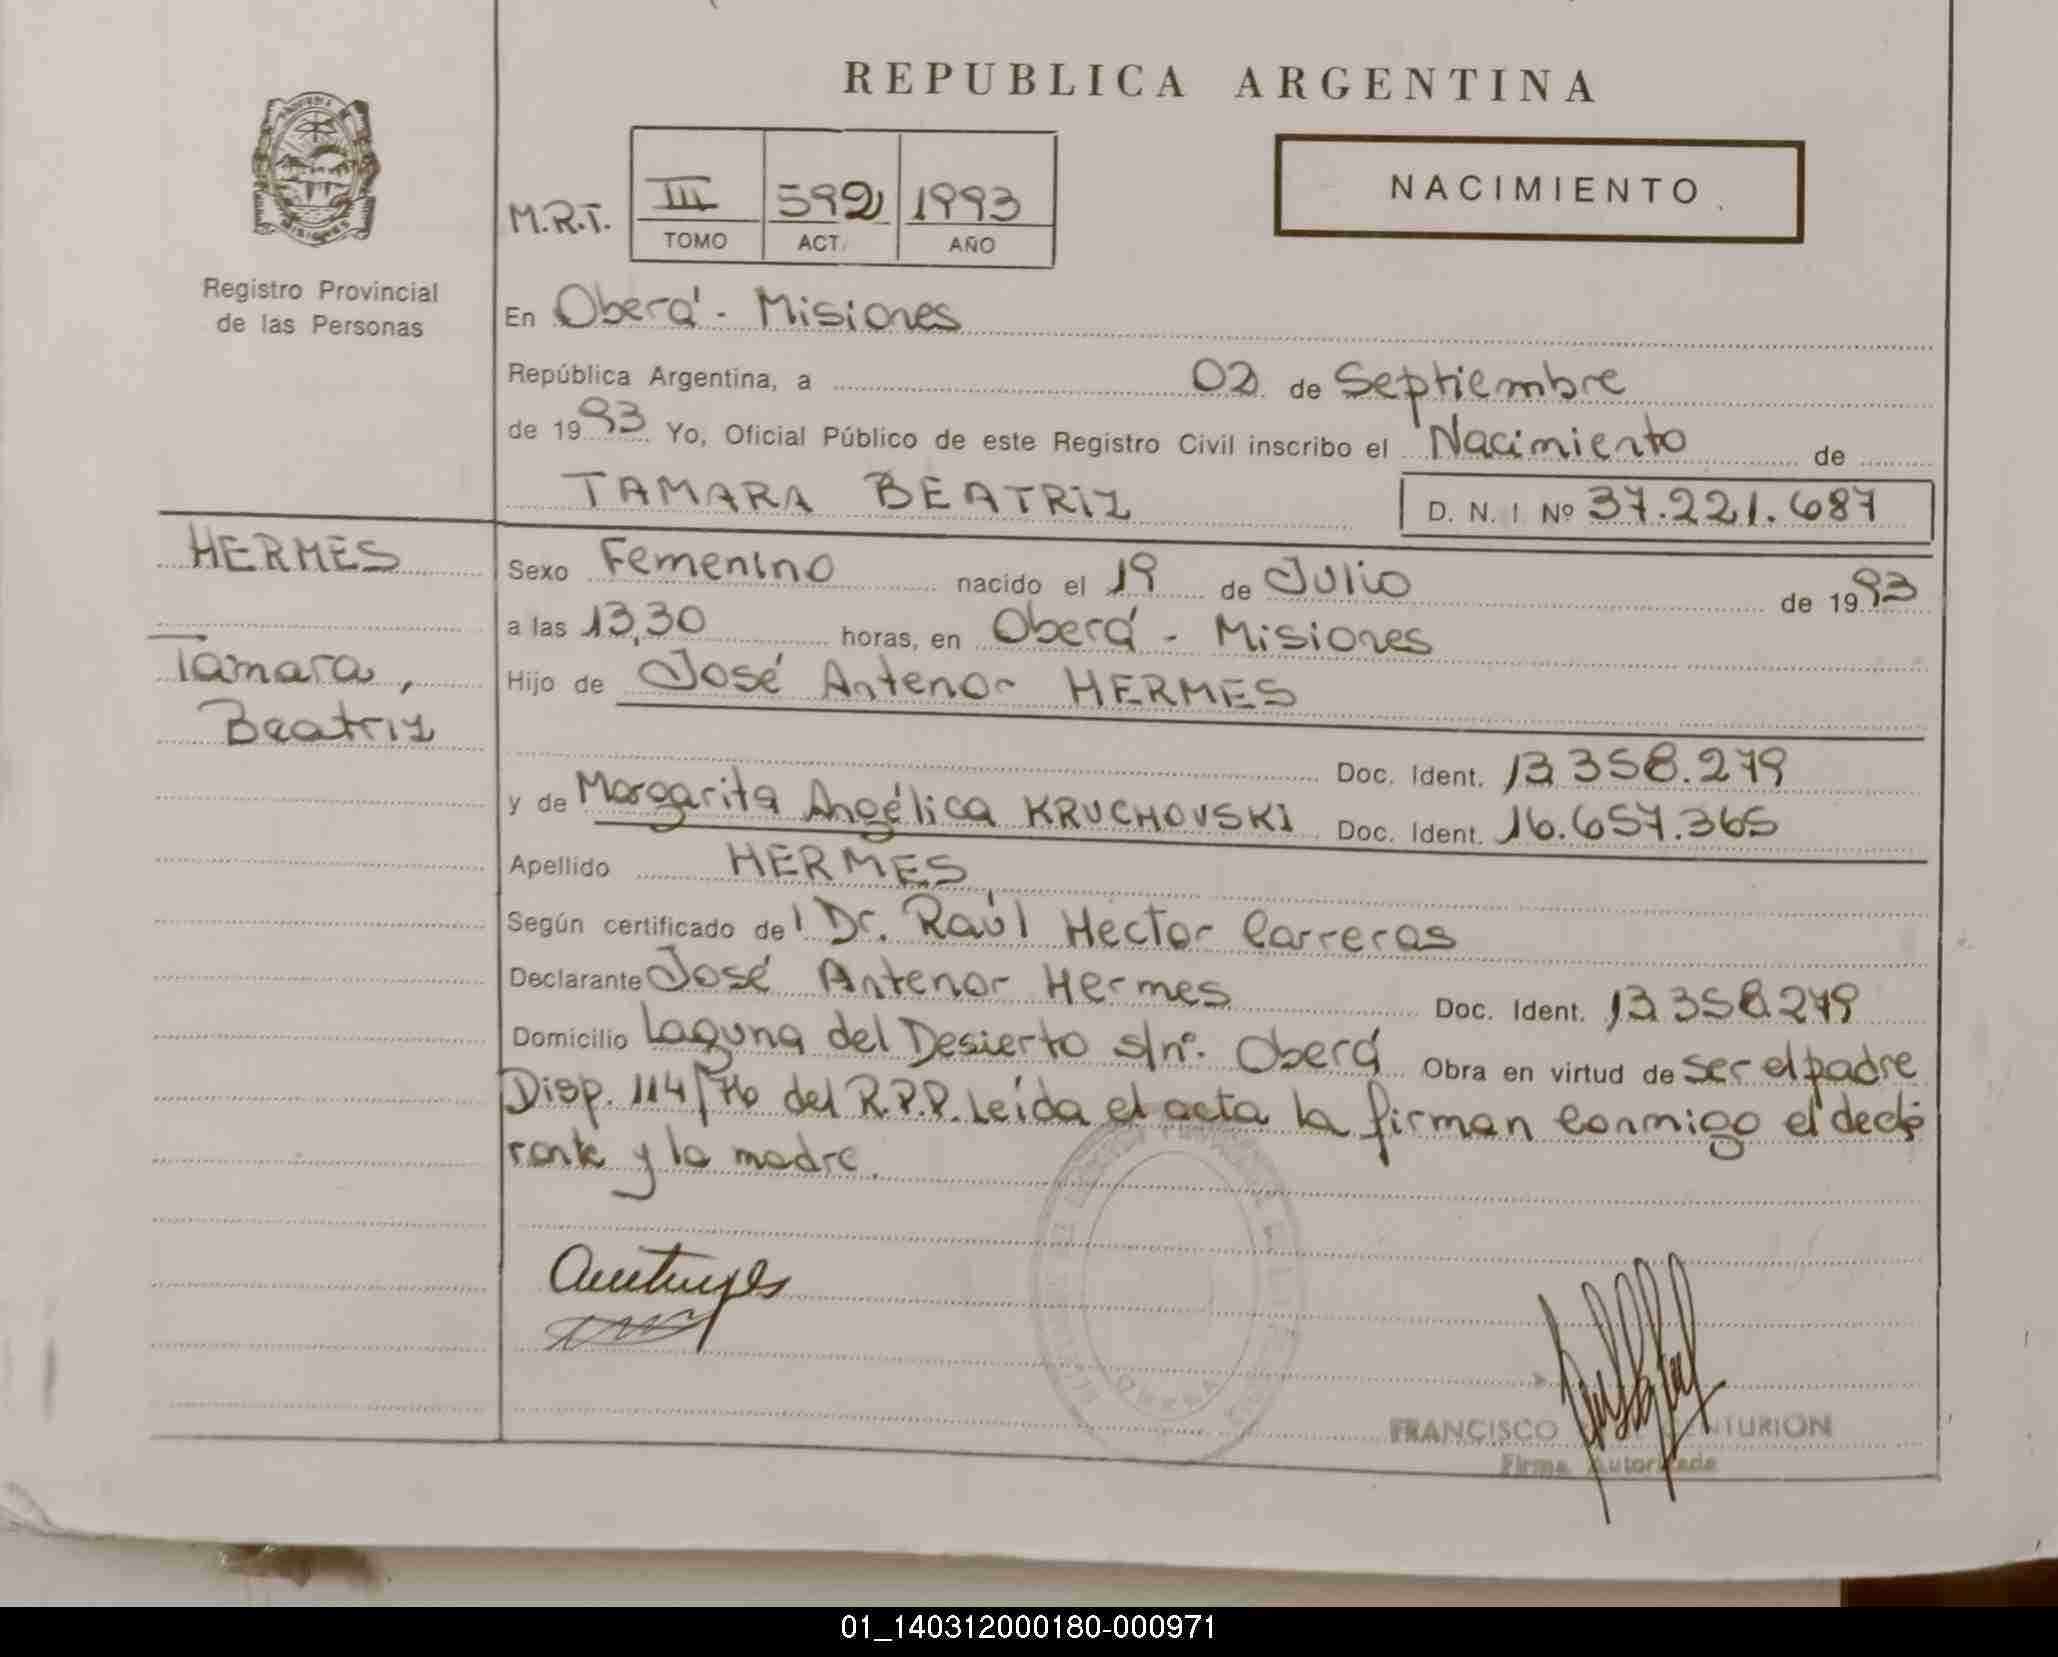 REPUBLICA ARGENTINA
NACIMIENTO
M.R.T.
III 592 1993
TOMO ACT. AÑO
Registro Provincial
de las Personas
En Oberá - Misiones
República Argentina, a 02 de Septiembre
de 1993 Yo, Oficial Público de este Registro Civil inscribo el Nacimiento de
TAMARA BEATRIZ D. N. I Nº 37.221.687
HERMES
Tamara,
Beatriz
Sexo Femenino nacido el 19 de Julio de 1993
a las 13,30 horas, en Oberá - Misiones
Hijo de José Antenor HERMES
Doc. Ident. 13.358.279
y de Margarita Angélica KRUCHOVSKI Doc. Ident. 16.657.365
Apellido HERMES
Según certificado del Dr. Raúl Hector Carreras
Declarante José Antenor Hermes Doc. Ident. 13.358.279
Domicilio Laguna del Desierto s/nº. Oberá Obra en virtud de ser el padre
Disp. 114/76 del R.P.P. Leída el acta la firman conmigo el decla
rante y la madre.
OBERA
FRANCISCO CENTURION
Firma Autorizada
01_140312000180-000971